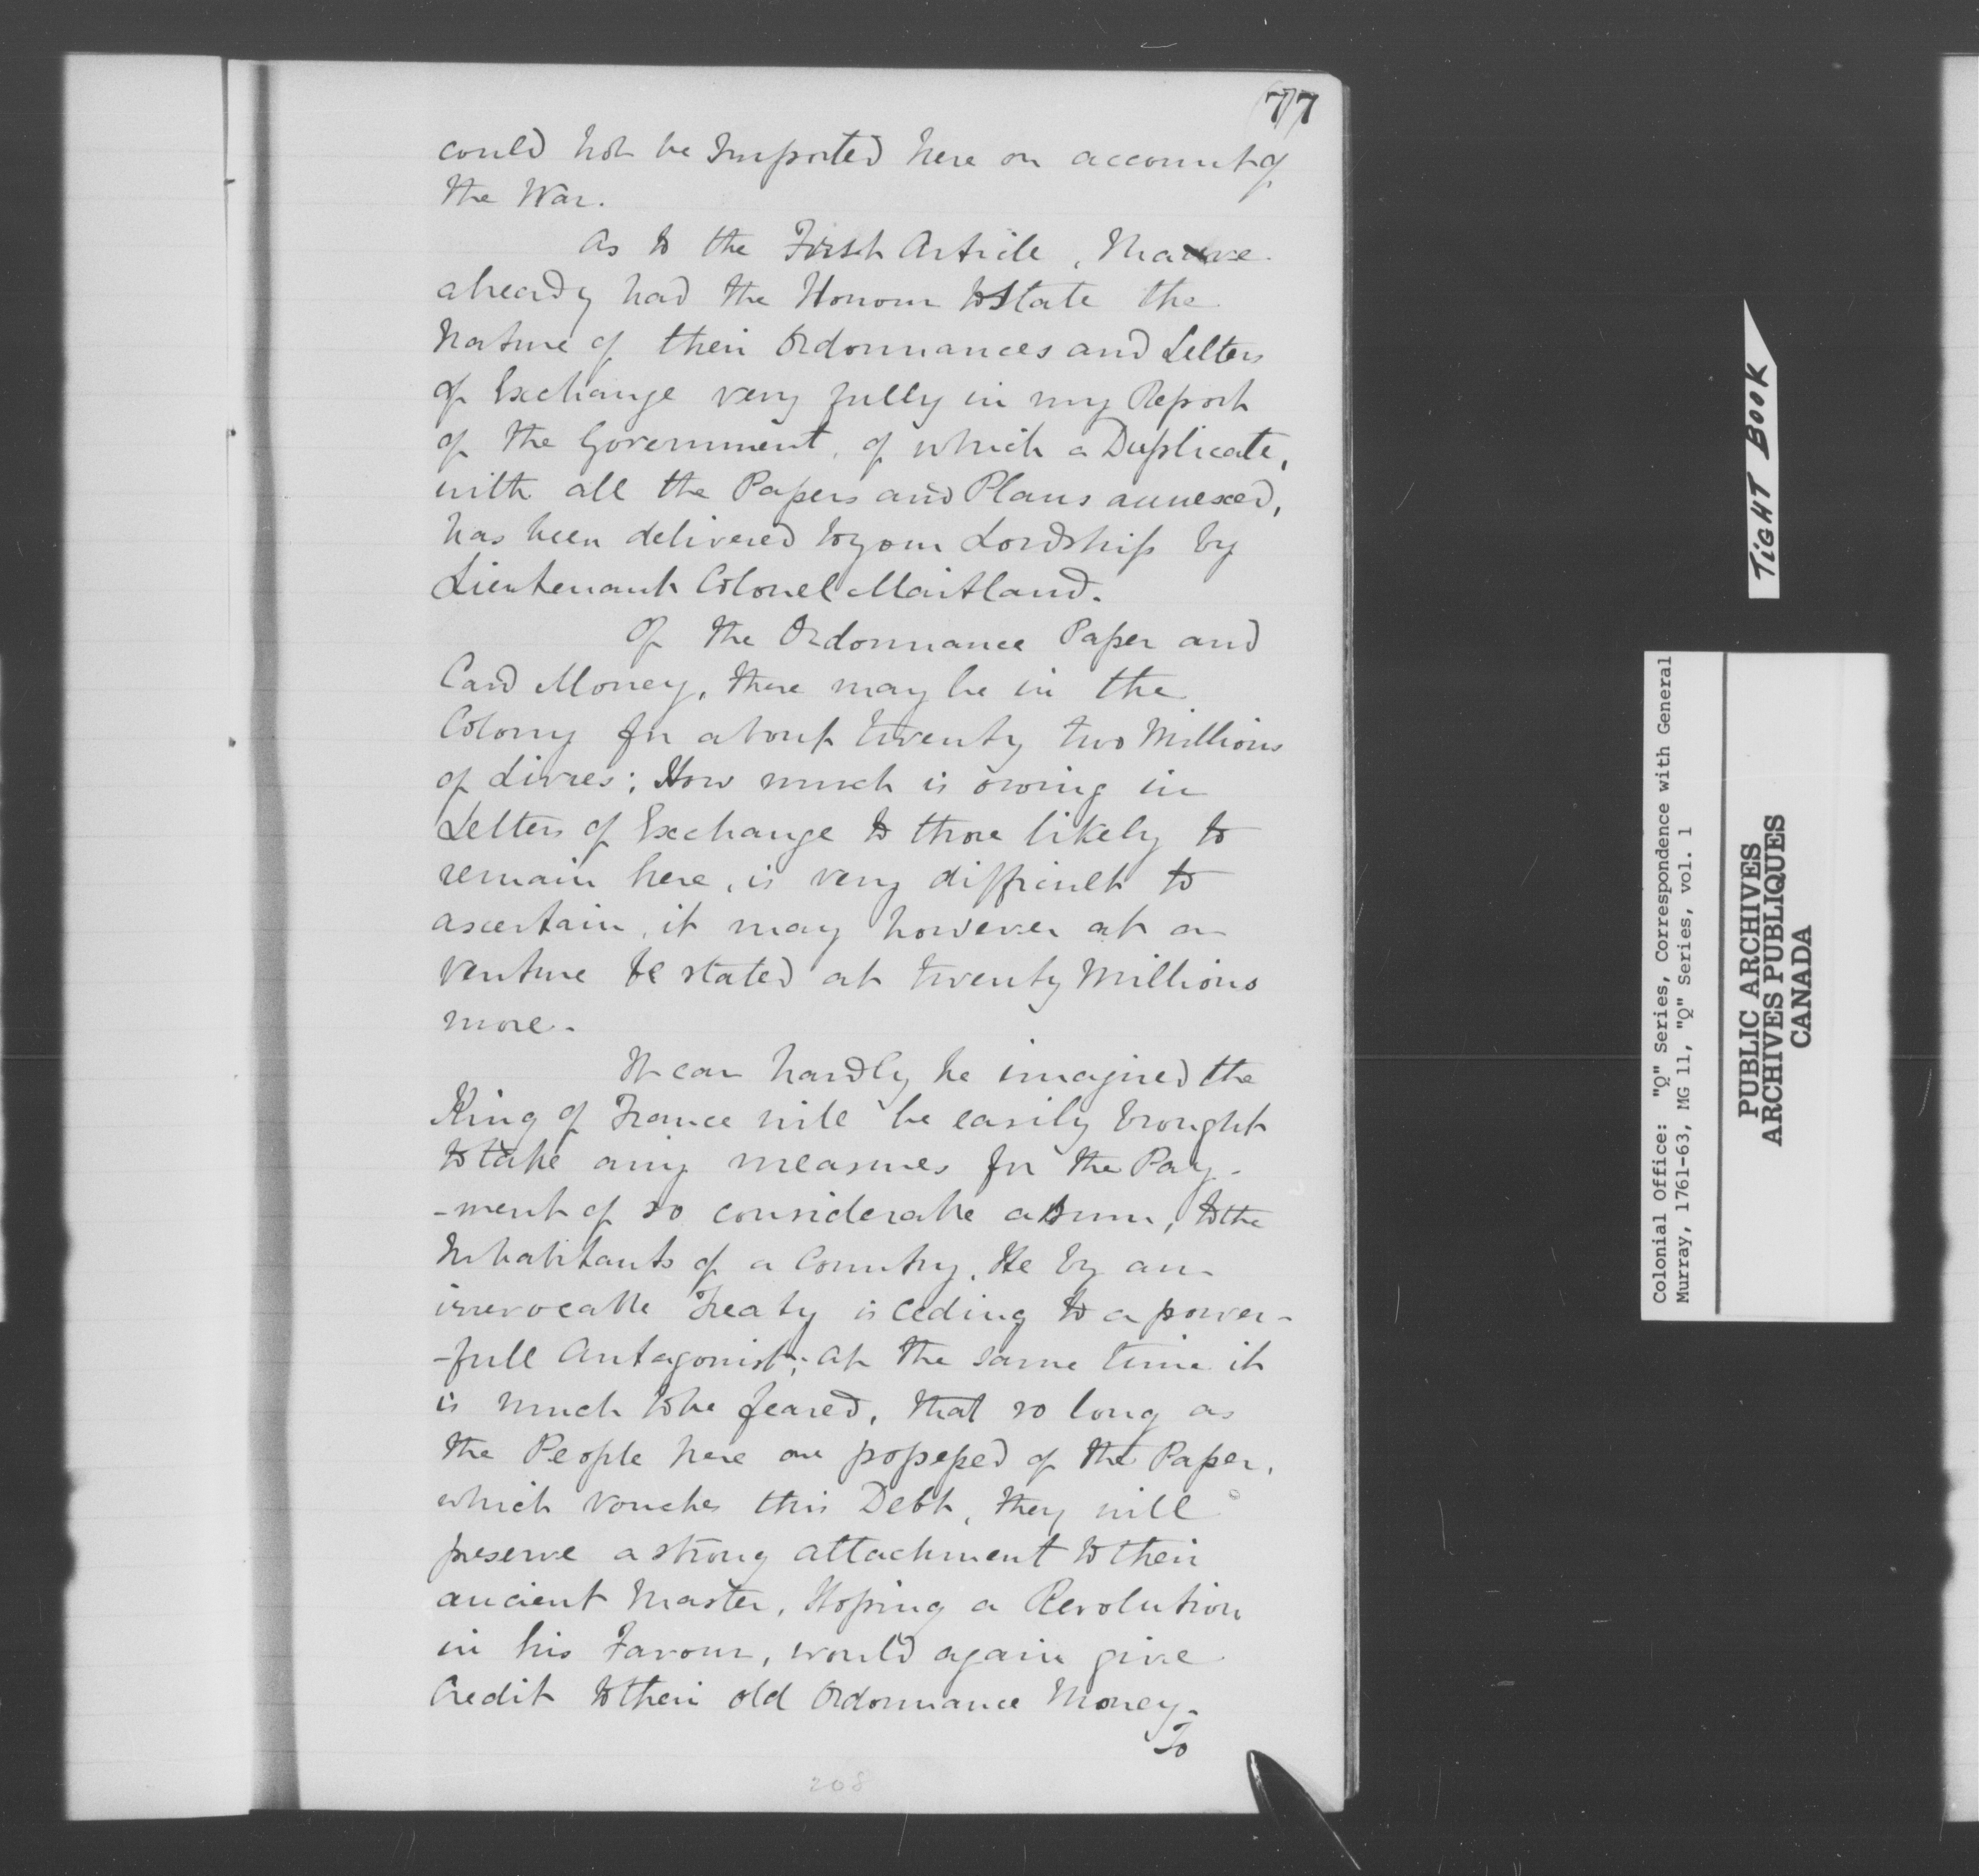 77
could not be Imported here on account of
the War.
As to the First Article, I have
already had the Honour to State the
Nature of their Ordonnances and Letters
of Exchange very fully in my Report
of the Government, of which a Duplicate,
with all the Papers and Plans annexed,
has been delivered to your Lordship by
Lieutenant Colonel Maitland.
Of the Ordonnance Paper and
Card Money, there may be in the
Colony for about twenty two Millions
of Livres; How much is owing in
Letters of Exchange to those likely to
remain here, is very difficult to
ascertain, it may however at a
venture be stated at twenty Millions
more.
It can hardly be imagined the
King of France will be easily brought
to take any measures for the Pay-
-ment of so considerable a Sum, to the
Inhabitants of a Country, He by an
irrevocable Treaty is ceding to a power-
-full Antagonist; at the same time it
is much to be feared, that so long as
the People here are possessed of the Paper,
which vouches this Debt, they will
preserve a strong attachment to their
ancient Master, Hoping a Revolution
in his Favour, would again give
Credit to their old Ordonnance Money.
To
208
TIGHT BOOK
Colonial Office: "Q" Series, Correspondence with General
Murray, 1761-63, MG 11, "Q" Series, vol. 1
PUBLIC ARCHIVES
ARCHIVES PUBLIQUES
CANADA